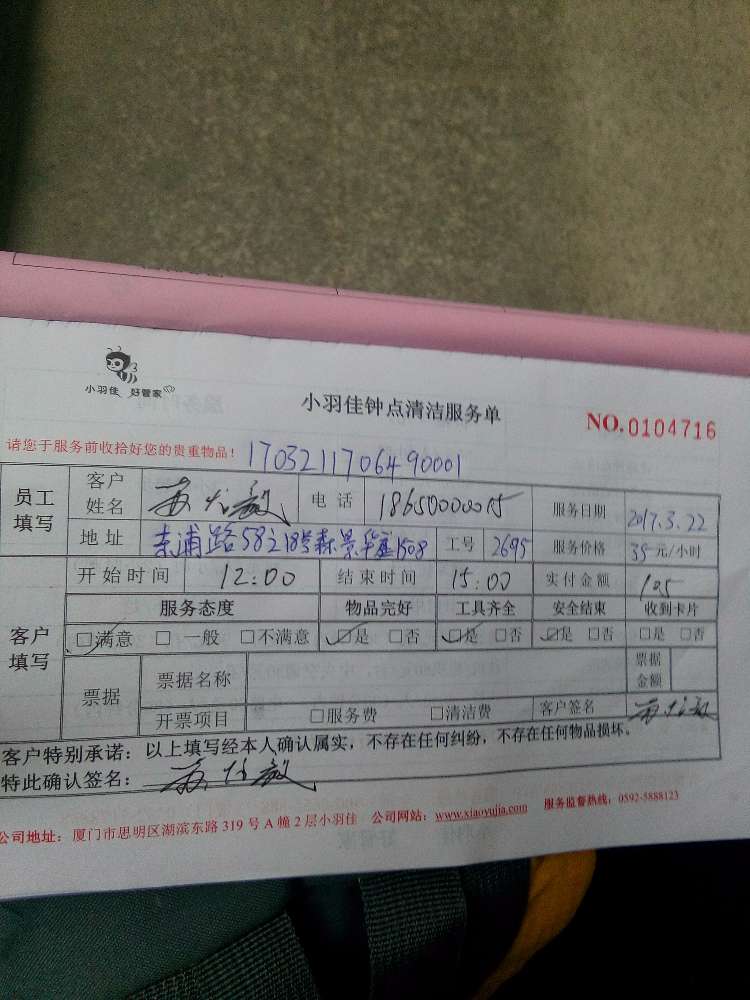 小羽佳 好管家
小羽佳钟点清洁服务单
NO.0104716
请您于服务前收拾好您的贵重物品！
1703211706490001
员工填写 客户姓名 苏 电话 18650000015 服务日期 2017.3.22
地址 浦路58之18号森景华庭1508 工号 2695 服务价格 35元/小时
客户填写 开始时间 12:00 结束时间 15:00 实付金额 105
服务态度 物品完好 工具齐全 安全结束 收到卡片
☑满意 □一般 □不满意 ☑是 □否 ☑是 □否 ☑是 □否 □是 □否
票据 票据名称 票据金额
开票项目 □服务费 □清洁费 客户签名 苏
客户特别承诺：以上填写经本人确认属实，不存在任何纠纷，不存在任何物品损坏。
特此确认签名： 苏
公司地址：厦门市思明区湖滨东路319号A幢2层小羽佳 公司网站：www.xiaoyujia.com 服务监督热线：0592-5888123